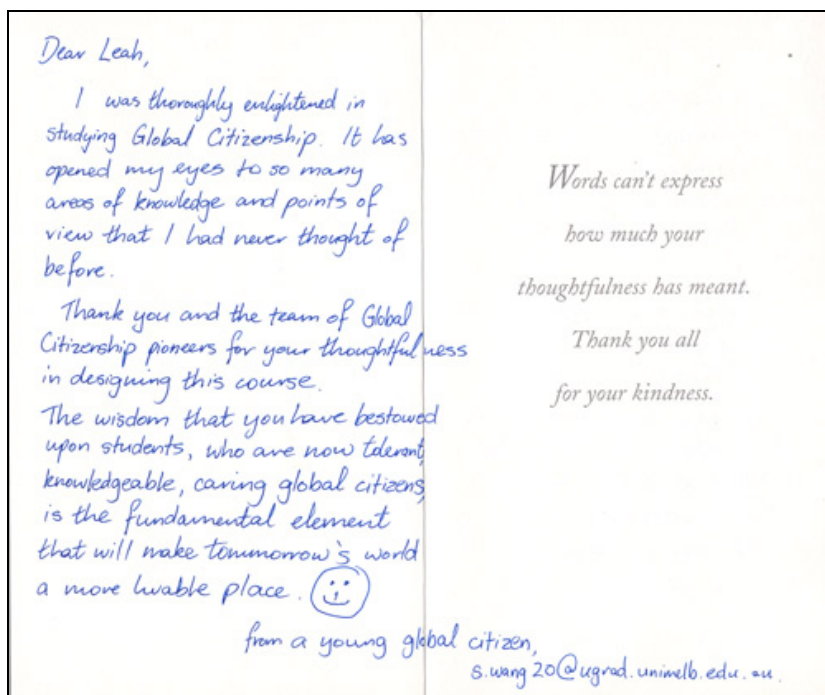 Dear Leah,
I was thoroughly enlightened in
studying Global Citizenship. It has
opened my eyes to so many
areas of knowledge and points of
view that I had never thought of
before.
Thank you and the team of Global
Citizenship pioneers for your thoughtfulness
in designing this course.
The wisdom that you have bestowed
upon students, who are now tolerant,
knowledgeable, caring global citizens,
is the fundamental element
that will make tommorrow's world
a more livable place.
from a young global citizen,
s.wang20@ugrad.unimelb.edu.au.
Words can't express
how much your
thoughtfulness has meant.
Thank you all
for your kindness.